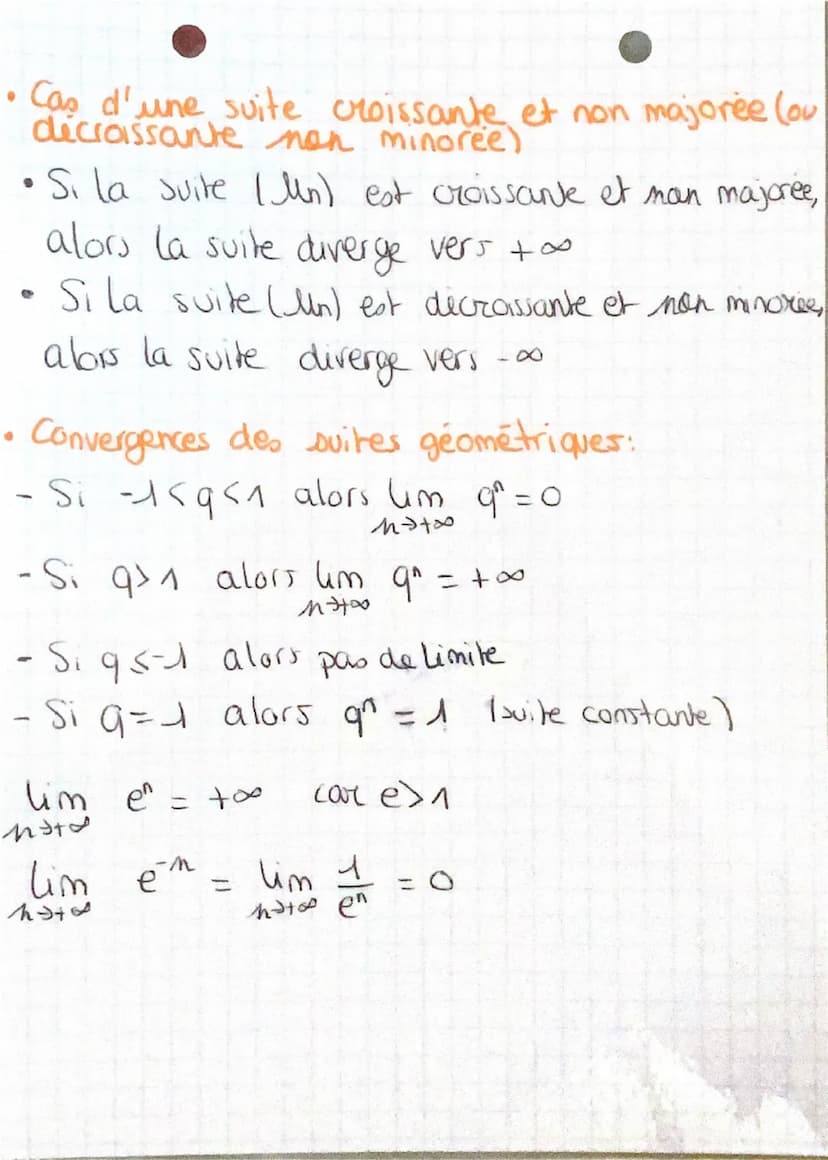 • Cas d'une suite croissante et non majorée (ou
décroissante non minorée)
• Si la suite (Un) est croissante et non majorée,
alors la suite diverge vers +∞
• Si la suite (Un) est décroissante et non minorée,
alors la suite diverge vers -∞
• Convergences des suites géométriques:
- Si -1<q<1 alors lim qⁿ = 0
n→+∞
- Si q>1 alors lim qⁿ = +∞
n→+∞
- Si q≤-1 alors pas de limite
- Si q=1 alors qⁿ = 1 (suite constante)
lim eⁿ = +∞ car e>1
n→+∞
lim e⁻ⁿ = lim 1/eⁿ = 0
n→+∞ n→+∞